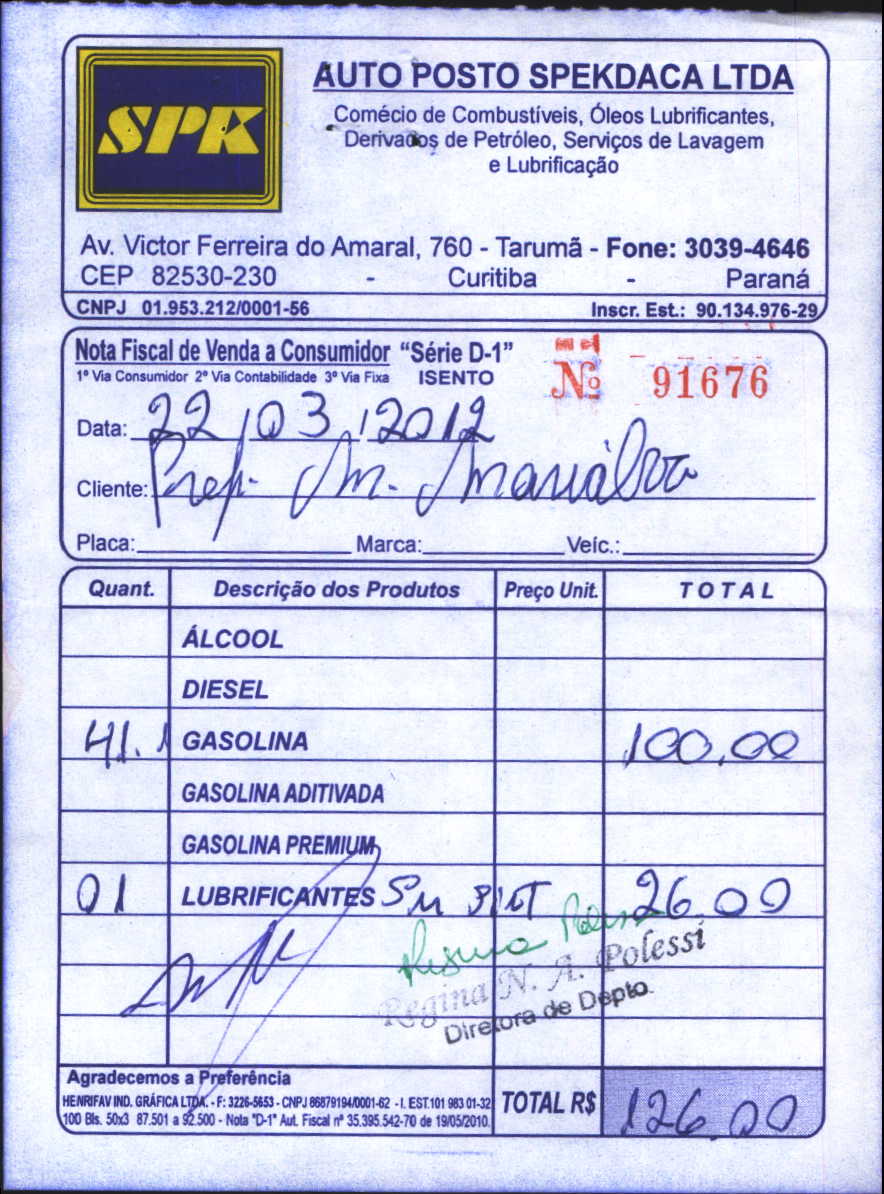 SPK
AUTO POSTO SPEKDACA LTDA
Comécio de Combustíveis, Óleos Lubrificantes,
Derivados de Petróleo, Serviços de Lavagem
e Lubrificação
Av. Victor Ferreira do Amaral, 760 - Tarumã - Fone: 3039-4646
CEP 82530-230 - Curitiba - Paraná
CNPJ 01.953.212/0001-56 Inscr. Est.: 90.134.976-29
Nota Fiscal de Venda a Consumidor "Série D-1"
1º Via Consumidor 2º Via Contabilidade 3º Via Fixa ISENTO
Nº 91676
Data: 22/03/2012
Cliente: Pref. M. Marialva
Placa: Marca: Veíc.:
Quant. Descrição dos Produtos Preço Unit. TOTAL
ÁLCOOL
DIESEL
41.1 GASOLINA 100,00
GASOLINA ADITIVADA
GASOLINA PREMIUM
01 LUBRIFICANTES 26,00
Regina N. A. Polessi
Diretora de Depto.
Agradecemos a Preferência
HENRIFAV IND. GRÁFICA LTDA. - F: 3226-5653 - CNPJ 86879194/0001-62 - I. EST.101 983 01-32
100 Bls. 50x3 87.501 a 92.500 - Nota "D-1" Aut. Fiscal nº 35.395.542-70 de 19/05/2010.
TOTAL R$ 126,00